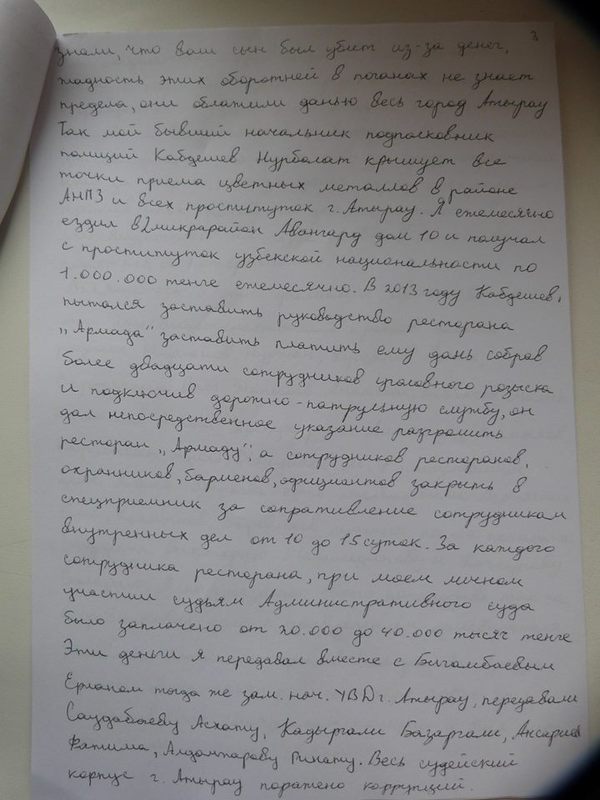 3
знали, что ваш сын был убит из-за денег,
жадность этих оборотней в погонах не знает
предела, они облатили данью весь город Атырау
Так мой бывший начальник подполковник
полиций Кабдешев Нурболат крышует все
точки приема цветных металлов в районе
АНПЗ и всех проституток г. Атырау. Я ежемесячно
ездил в 2 микрарайон Авангард дом 10 и получал
с проституток узбекской национальности по
1.000.000 тенге ежемесячно. В 2013 году Кабдешев,
пытался заставить руководство ресторана
„Армада“ заставить платить ему дань собрав
более двадцати сотрудников уголовного розыска
и подключив дорожно-патрульную службу, он
дал непосредственное указание разгромить
ресторан „Армаду“, а сотрудников ресторанов,
охранников, барменов, официантов закрыть в
спецприемник за сопративление сотрудникам
внутренных дел от 10 до 15 суток. За каждого
сотрудника ресторана, при моем личном
участии судьям Административного суда
было заплачено от 20.000 до 40.000 тысяч тенге
Эти деньги я передавал вместе с Бигамбаевым
Ерланом тогда же зам. нач. УВД г. Атырау, передавали
Саудабаеву Асхату, Кадыргали Базаргали,
Фатима, Ринату. Весь судейский
корпус г. Атырау поражено коррупций.